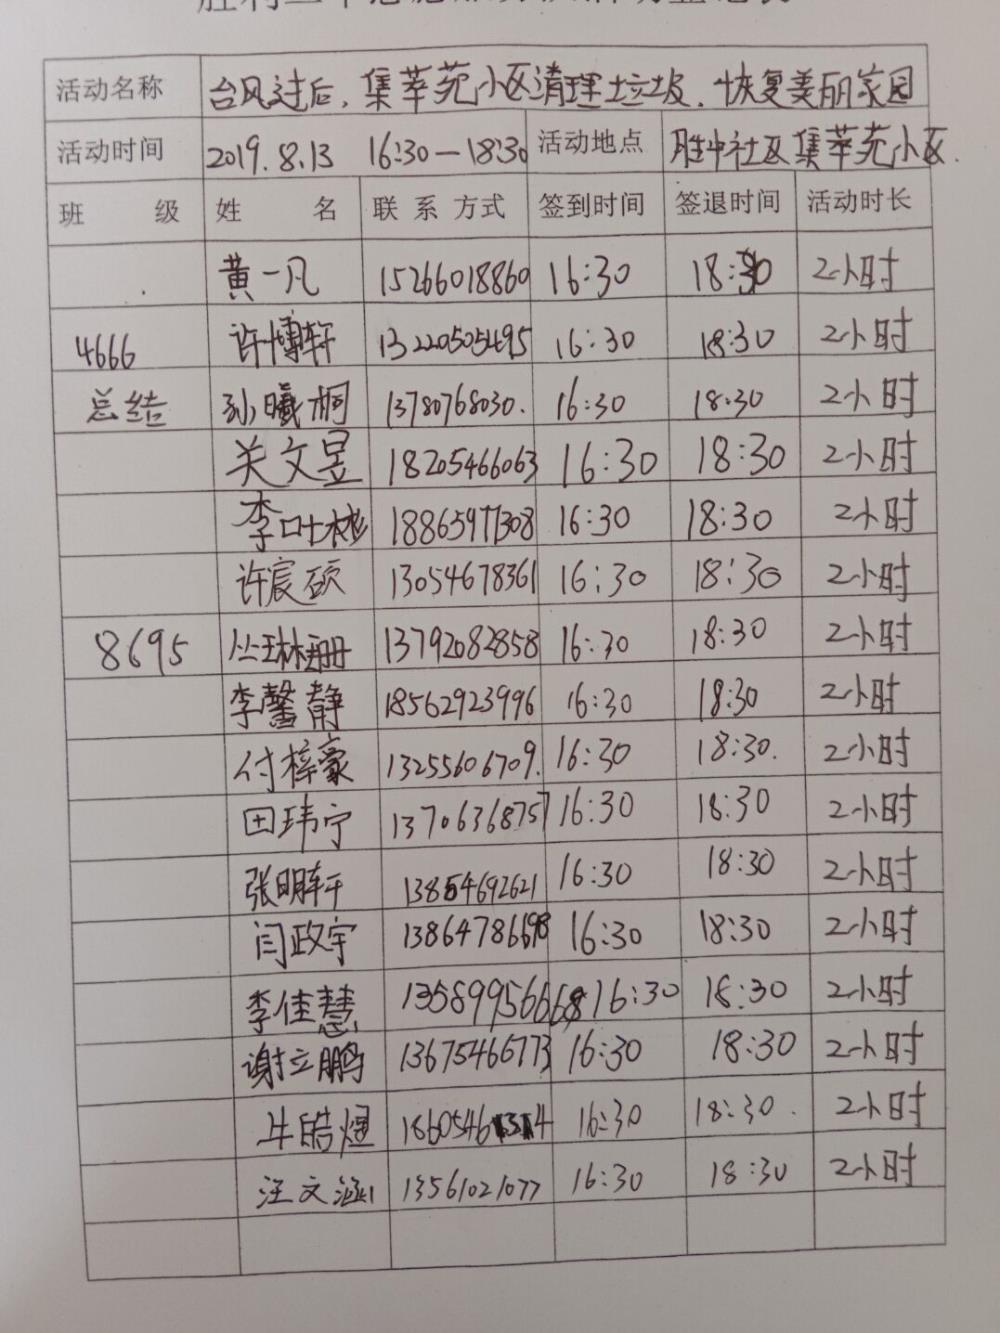 活动名称 台风过后，集萃苑小区清理垃圾，恢复美丽家园
活动时间 2019.8.13 16:30—18:30 活动地点 胜中社区集萃苑小区.
班 级 姓 名 联系方式 签到时间 签退时间 活动时长
黄一凡 15266018860 16:30 18:30 2小时
4666 许博轩 13220505495 16:30 18:30 2小时
总结 孙曦桐 13780768030. 16:30 18:30 2小时
关文昱 18205466063 16:30 18:30 2小时
李叶彬 18865977308 16:30 18:30 2小时
许宸硕 13054678361 16:30 18:30 2小时
8695 丛琳珊 13792082858 16:30 18:30 2小时
李馨静 18562923996 16:30 18:30 2小时
付梓豪 13255606709. 16:30 18:30. 2小时
田玮宁 13706368757 16:30 18:30 2小时
张明轩 13854692621 16:30 18:30 2小时
闫政宇 13864786698 16:30 18:30 2小时
李佳慧 13589956668 16:30 18:30 2小时
谢立鹏 13675466773 16:30 18:30 2小时
牛皓煜 16:30 18:30. 2小时
汪文涵 13561021077 16:30 18:30 2小时